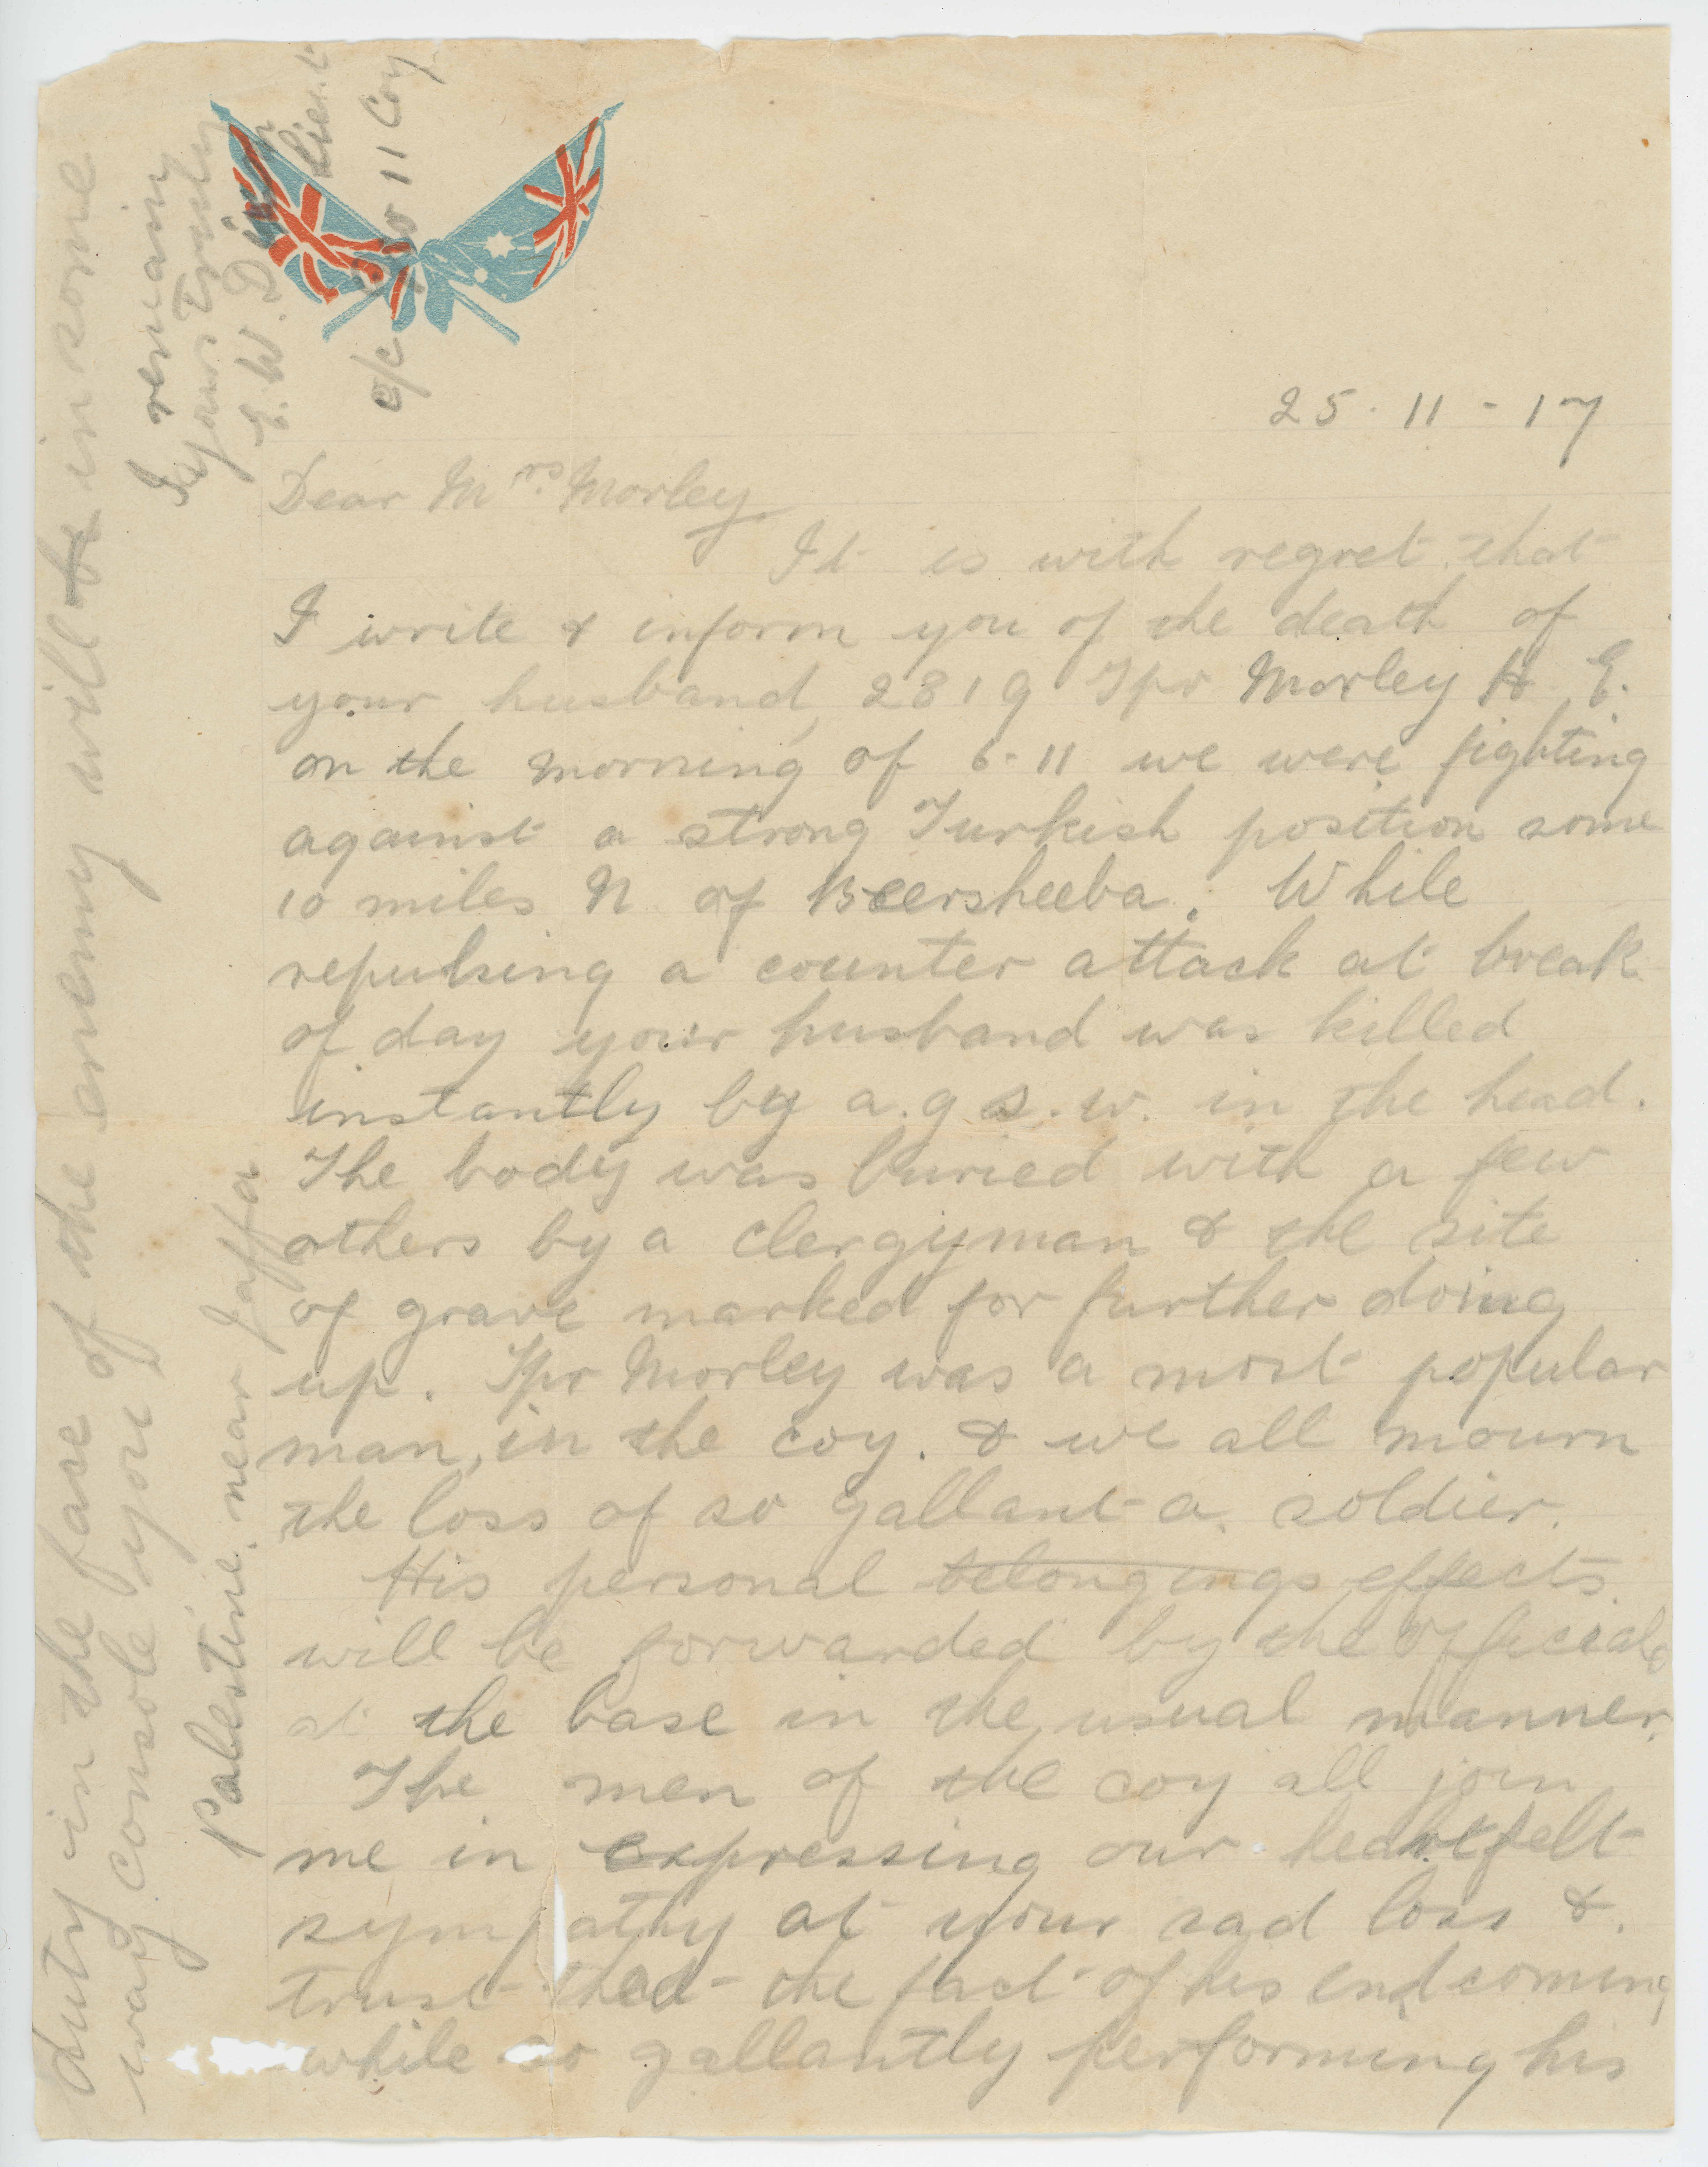 25-11-17
Dear Mrs. Morley
It is with regret that
I write & inform you of the death of
your husband, 2819 Tpr Morley H E.
on the morning of 6-11 we were fighting
against a strong Turkish position some
10 miles N of Beersheeba. While
repulsing a counter attack at break
of day your husband was killed
instantly by a.g.s.w. in the head.
The body was buried with a few
others by a clergyman & the site
of grave marked for further doing
up. Tpr Morley was a most popular
man, in the coy. & we all mourn
the loss of so gallant a soldier.
His personal belongings effects
will be forwarded by the officials
at the base in the usual manner.
The men of the coy all join
me in expressing our heartfelt
sympathy at your sad loss &
trust that the fact of his end coming
while so gallantly performing his
duty in the face of the enemy will be in some
way console you
I remain
Yours Truly
E. W. Dixon Lieut
o/c No 11 Coy
Palestine, near Jaffa